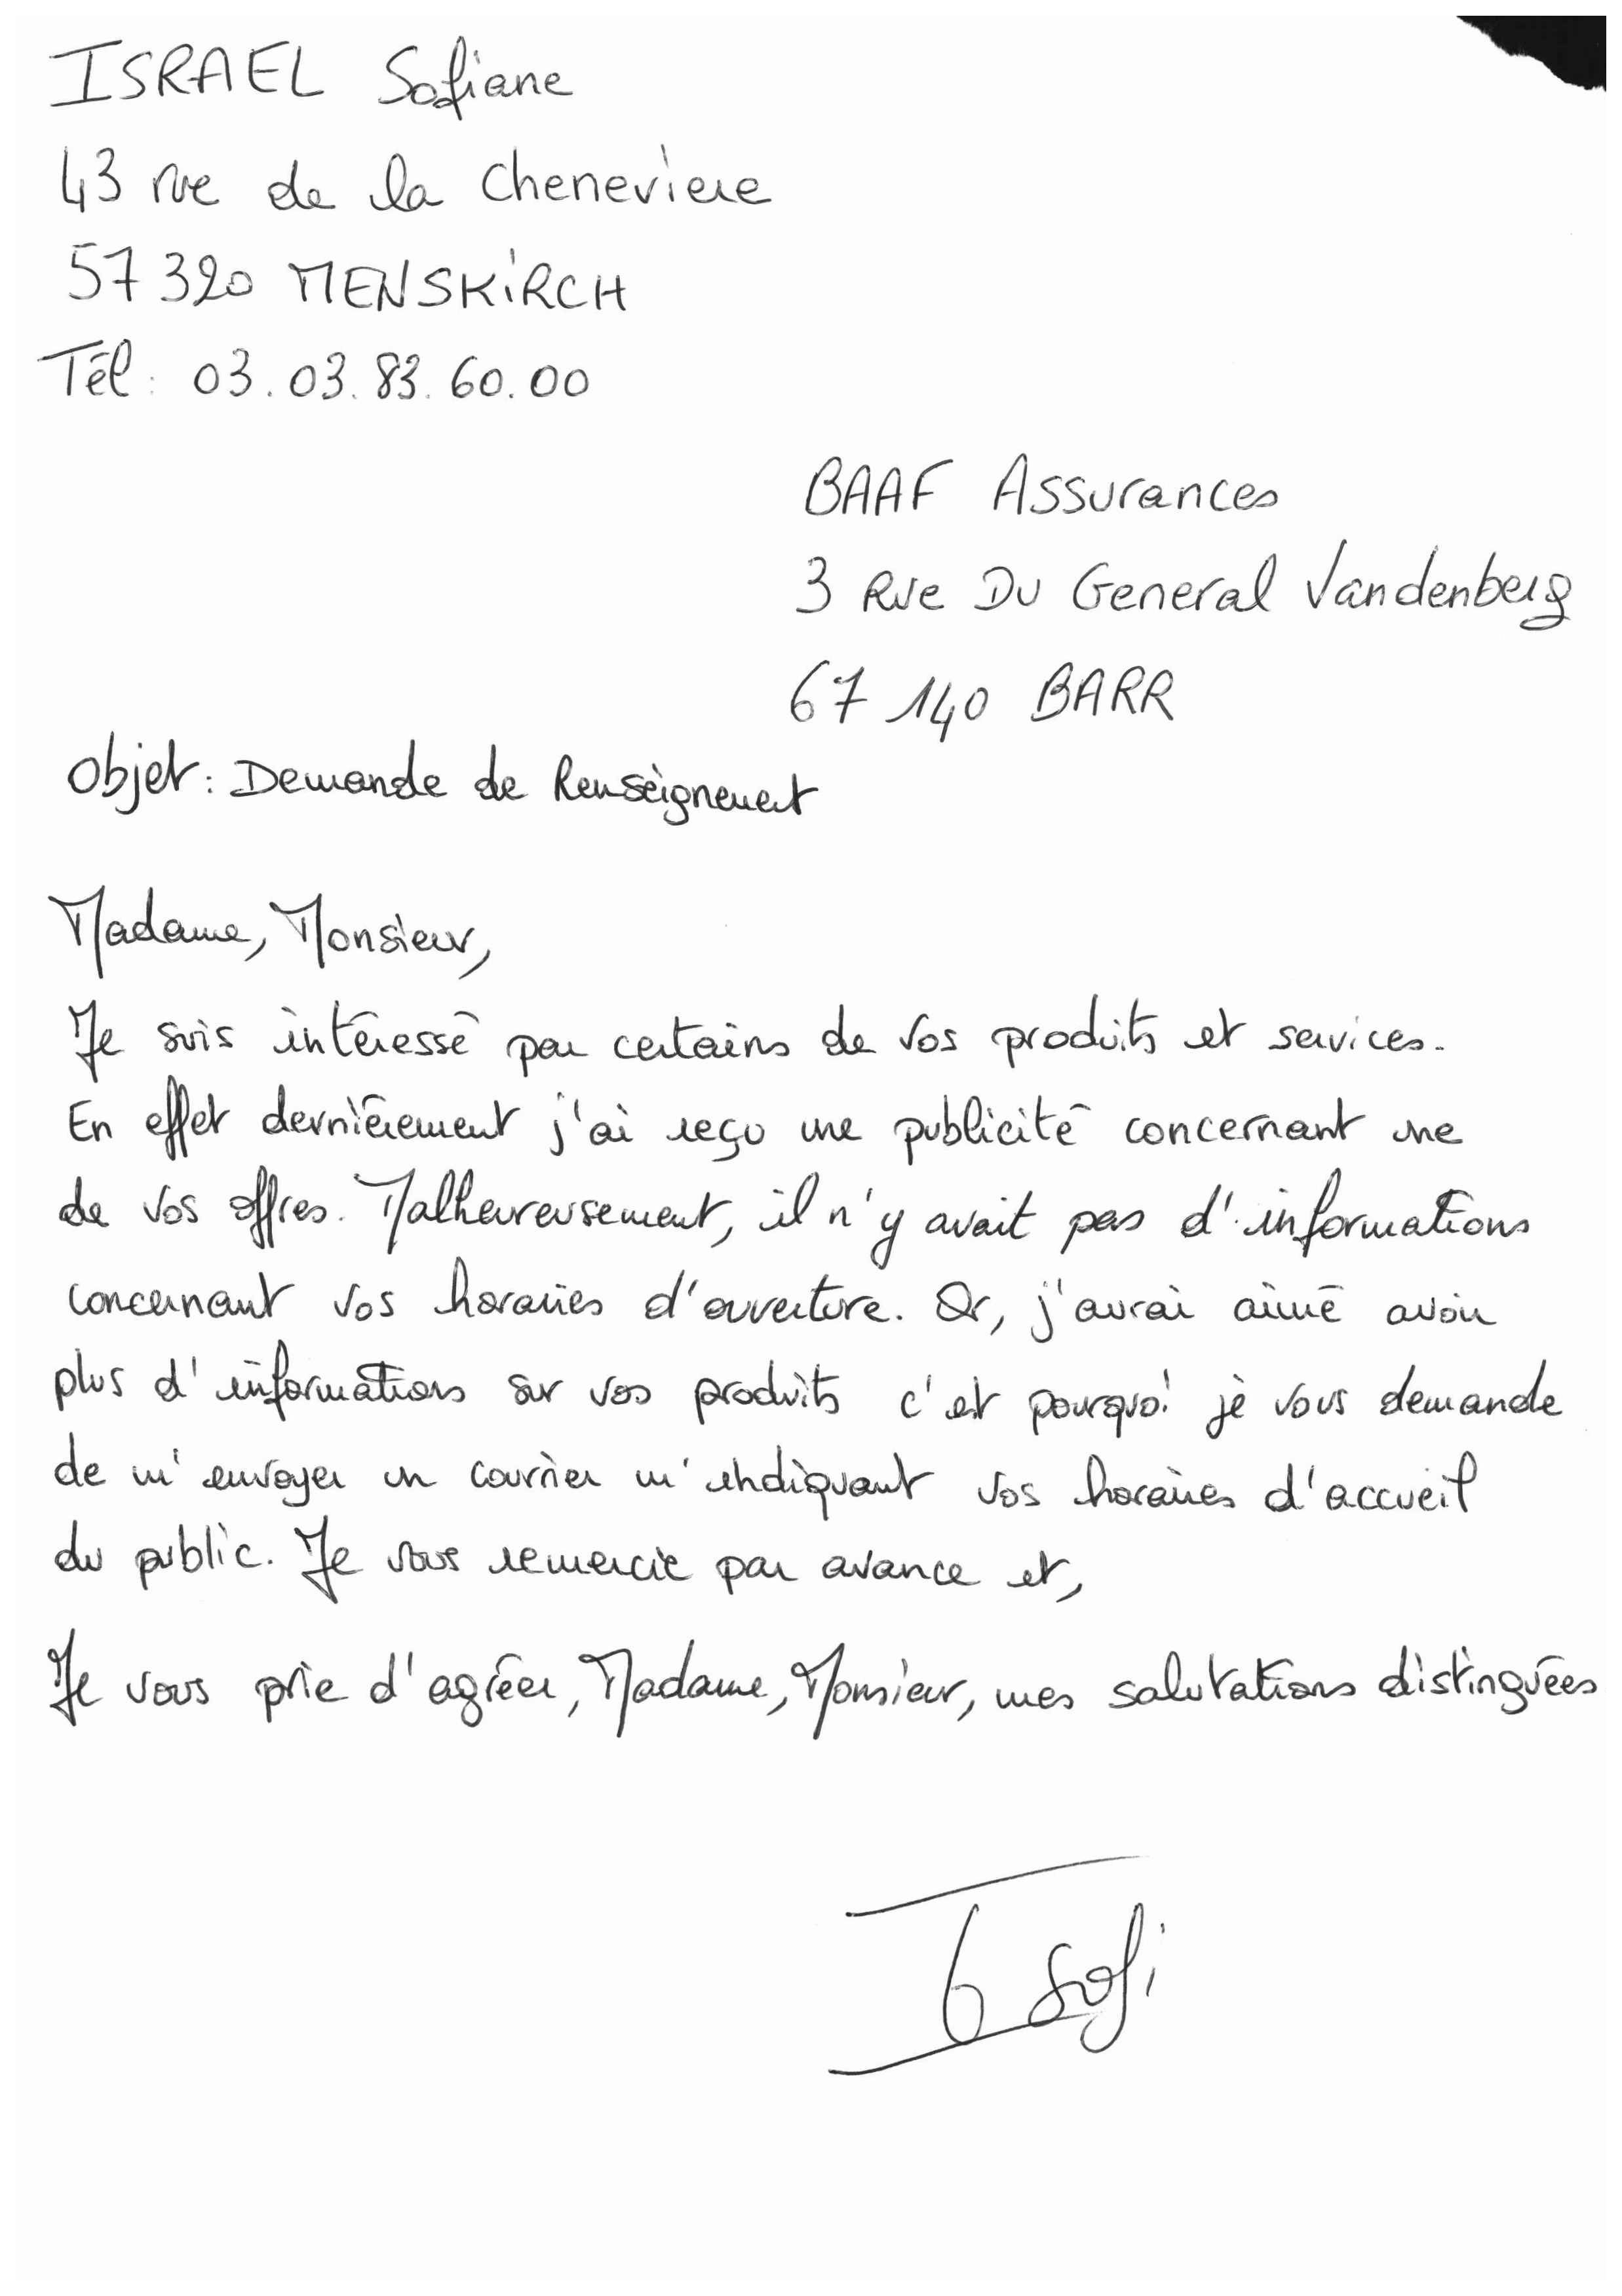 ISRAEL Sofiane
43 rue de la Cheneviere
57320 MENSKIRCH
Tél : 03.03.83.60.00
BAAF Assurances
3 Rue Du General Vandenberg
67 140 BARR
Objet : Demande de Renseignement
Madame, Monsieur,
Je suis intéressé par certains de vos produits et services.
En effet dernièrement j'ai reçu une publicité concernant une
de vos offres. Malheureusement, il n'y avait pas d'informations
concernant vos horaires d'ouverture. Or, j'aurai aimé avoir
plus d'informations sur vos produits c'est pourquoi je vous demande
de m'envoyer un courrier m'indiquant vos horaires d'accueil
du public. Je vous remercie par avance et,
Je vous prie d'agréer, Madame, Monsieur, mes salutations distinguées
Sofi